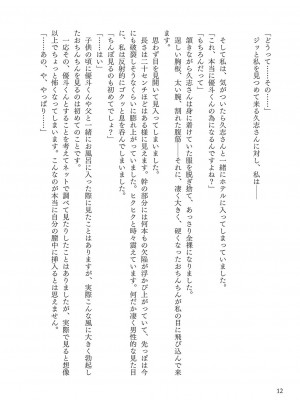 「どうって……その……」
ジッと私を見つめて来る久志さんに対し、私は――
そして私は、気がついたら久志さんと一緒にホテルに入ってしまっていました。
「これ、本当に優斗くんの為になるんですよね？」
「もちろんだって」
頷きながら久志さんは身に着けていた服を脱ぎ捨て、あっさり全裸になりました。
逞しい胸板、太い腕、割れた腹筋――それに、凄く大きく、硬くなったおちんちんが私の目に飛び込んで来
思わず目を見開いて見入ってしまいました。
長さは二十センチほどはある様に見えます。幹の部分には何本もの欠陥が浮かび上がっていて、先っぽは今
にも破裂しそうなくらいに膨れ上がっていました。ヒクヒクと時々震えています。何だか凄く男性的な見た目
に、私は反射的にゴクッと息を呑んでしまいました。
「ちんぽ見るのも初めてでしょ？」
「……はい」
子供の頃に優斗くんや父と一緒にお風呂に入った際に見たことはありますが、実際こんな風に大きく勃起し
たおちんちんを見るのは初めてのことです。
一応その、優斗くんとすることを考えてネットで調べて見たりしたことはありましたが、実際で見ると想像
以上でちょっと怖くなってしまいます。こんなのが本当に自分の膣中に挿入るとは思えません。
「……あの、や、やっぱり……」
12